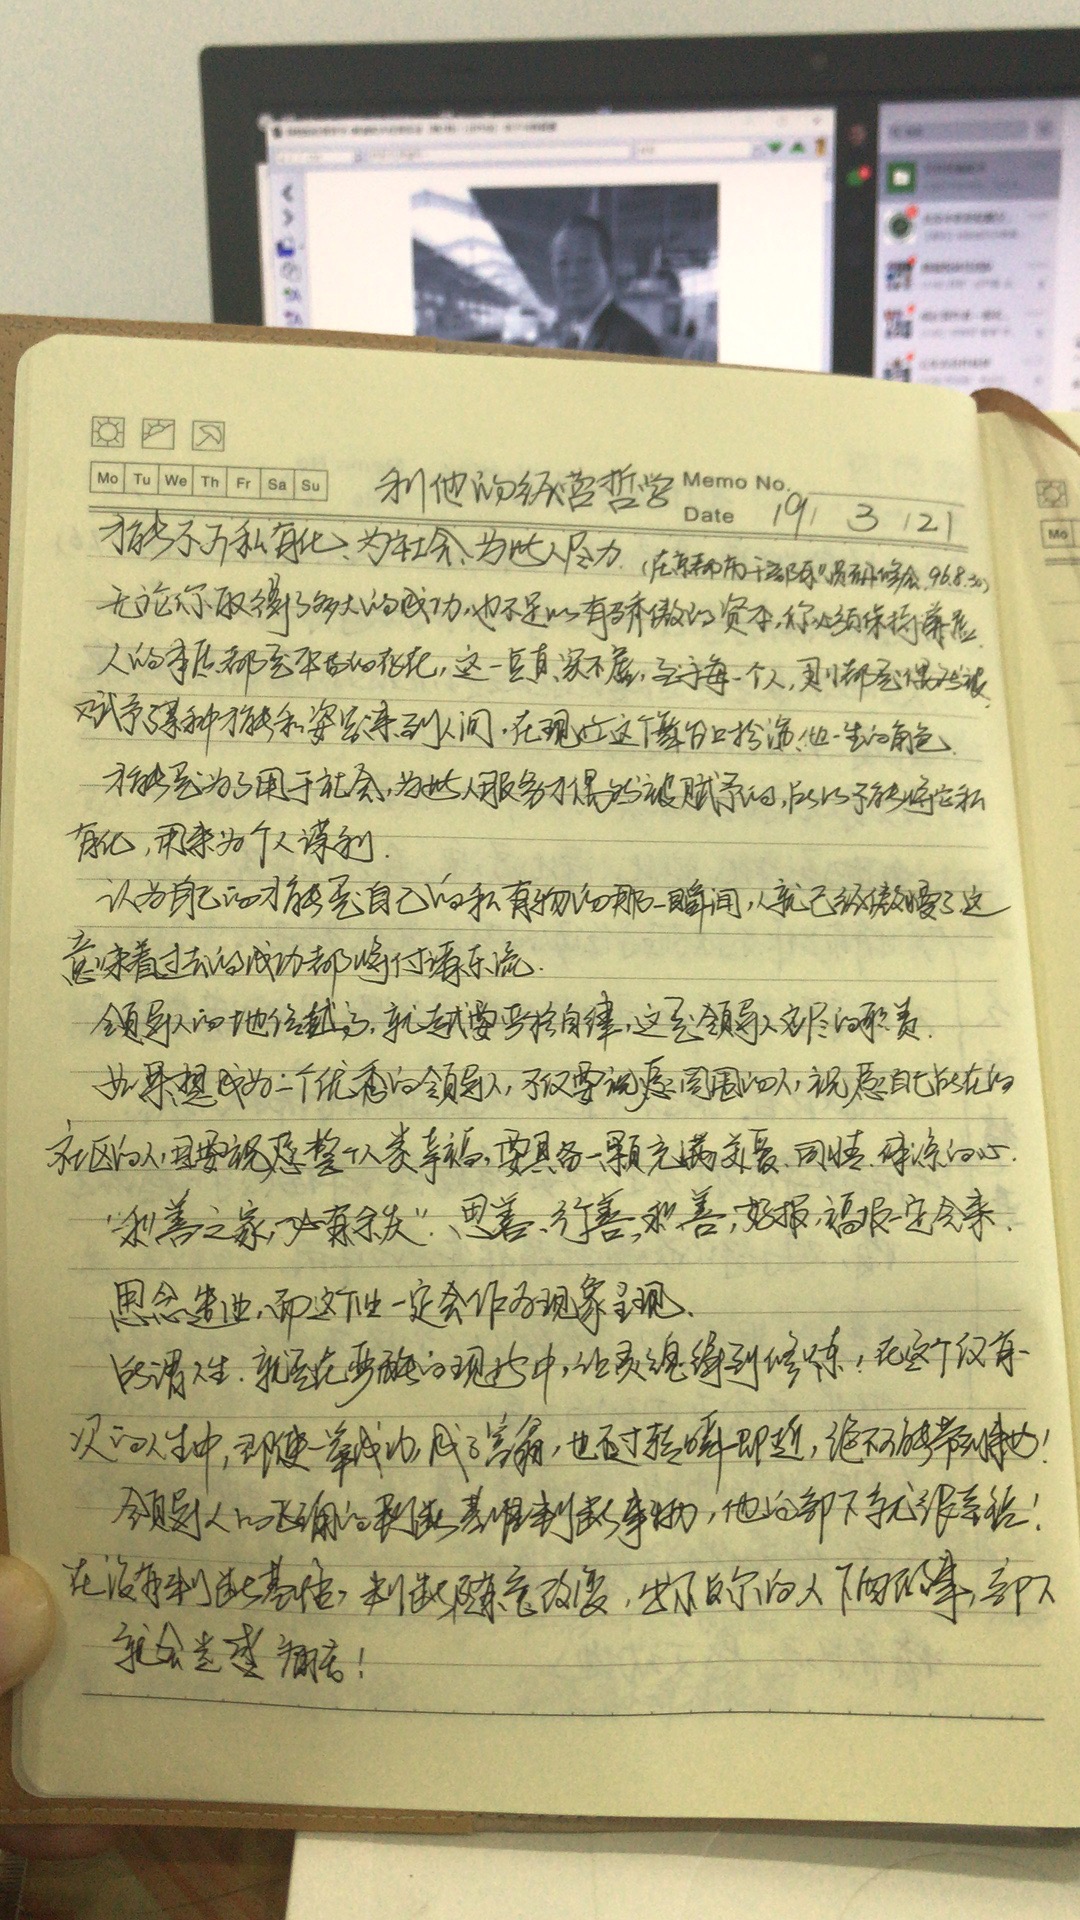 Mo Tu We Th Fr Sa Su
利他的经营哲学
Memo No.
Date 19 / 3 / 21
才能不可私有化、为社会、为世人尽力.
无论你取得了多大的成功,也不足以有骄傲的资本,你必须保持谦虚.
人的本质都是平等的存在,这一点真实不虚,至于每一个人,则都是偶然被
赋予了某种才能和姿态来到人间,在现世这个舞台上扮演他一生的角色.
才能是为了用于社会,为世人服务才偶然被赋予的,所以不能将它私
有化,用来为个人谋利.
认为自己的才能是自己的私有物的那一瞬间,人就已经傲慢了这
意味着过去的成功都将付诸东流.
领导人的地位越高,就越要严格自律,这是领导人应尽的职责.
如果想成为一个优秀的领导人,不仅要祝愿周围的人,祝愿自己所在的
社区的人,且要祝愿整个人类幸福,要具备一颗充满关爱、同情、体谅的心.
“积善之家,必有余庆”.思善、行善,积善,好报,福报一定会来.
思念造业,而这个业一定会作为现象呈现.
所谓人生.就是在严酷的现世中,让灵魂得到修炼!在这个仅有一
次的人生中,即使一举成功,成了富翁,也不过转瞬即逝,绝不能带到来世!
领导人以正确的判断基准判断事物,他的部下就很幸福!
在没有判断基准,判断随意改变,出尔反尔的人下面做事,部下
就会走遭痛苦!
Mo